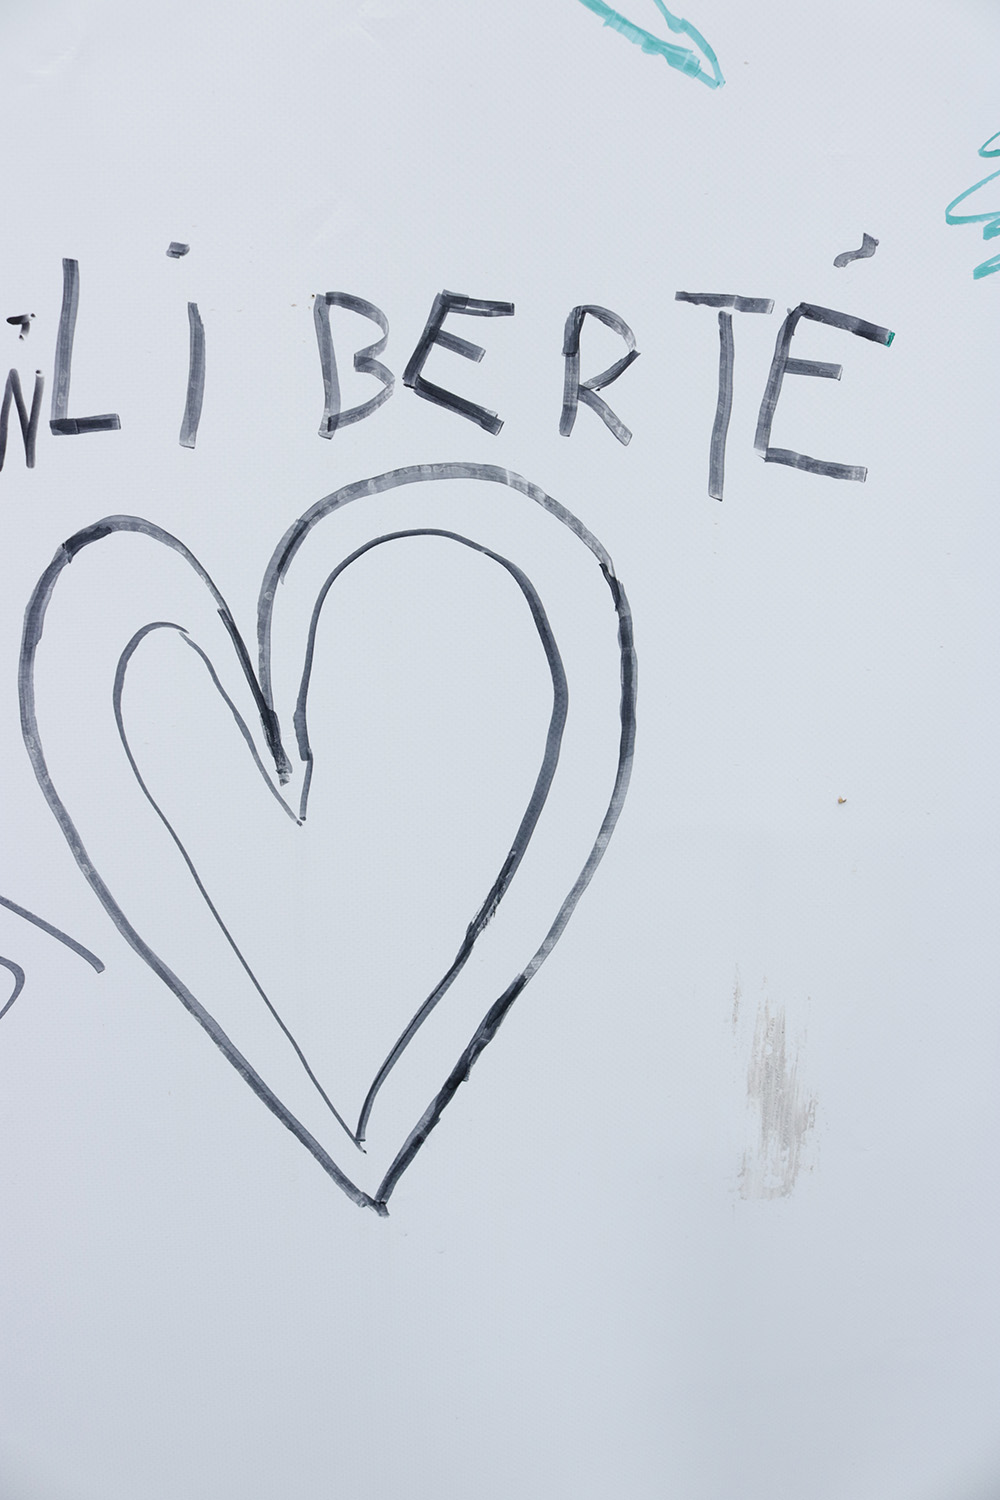 LiBERTÉ